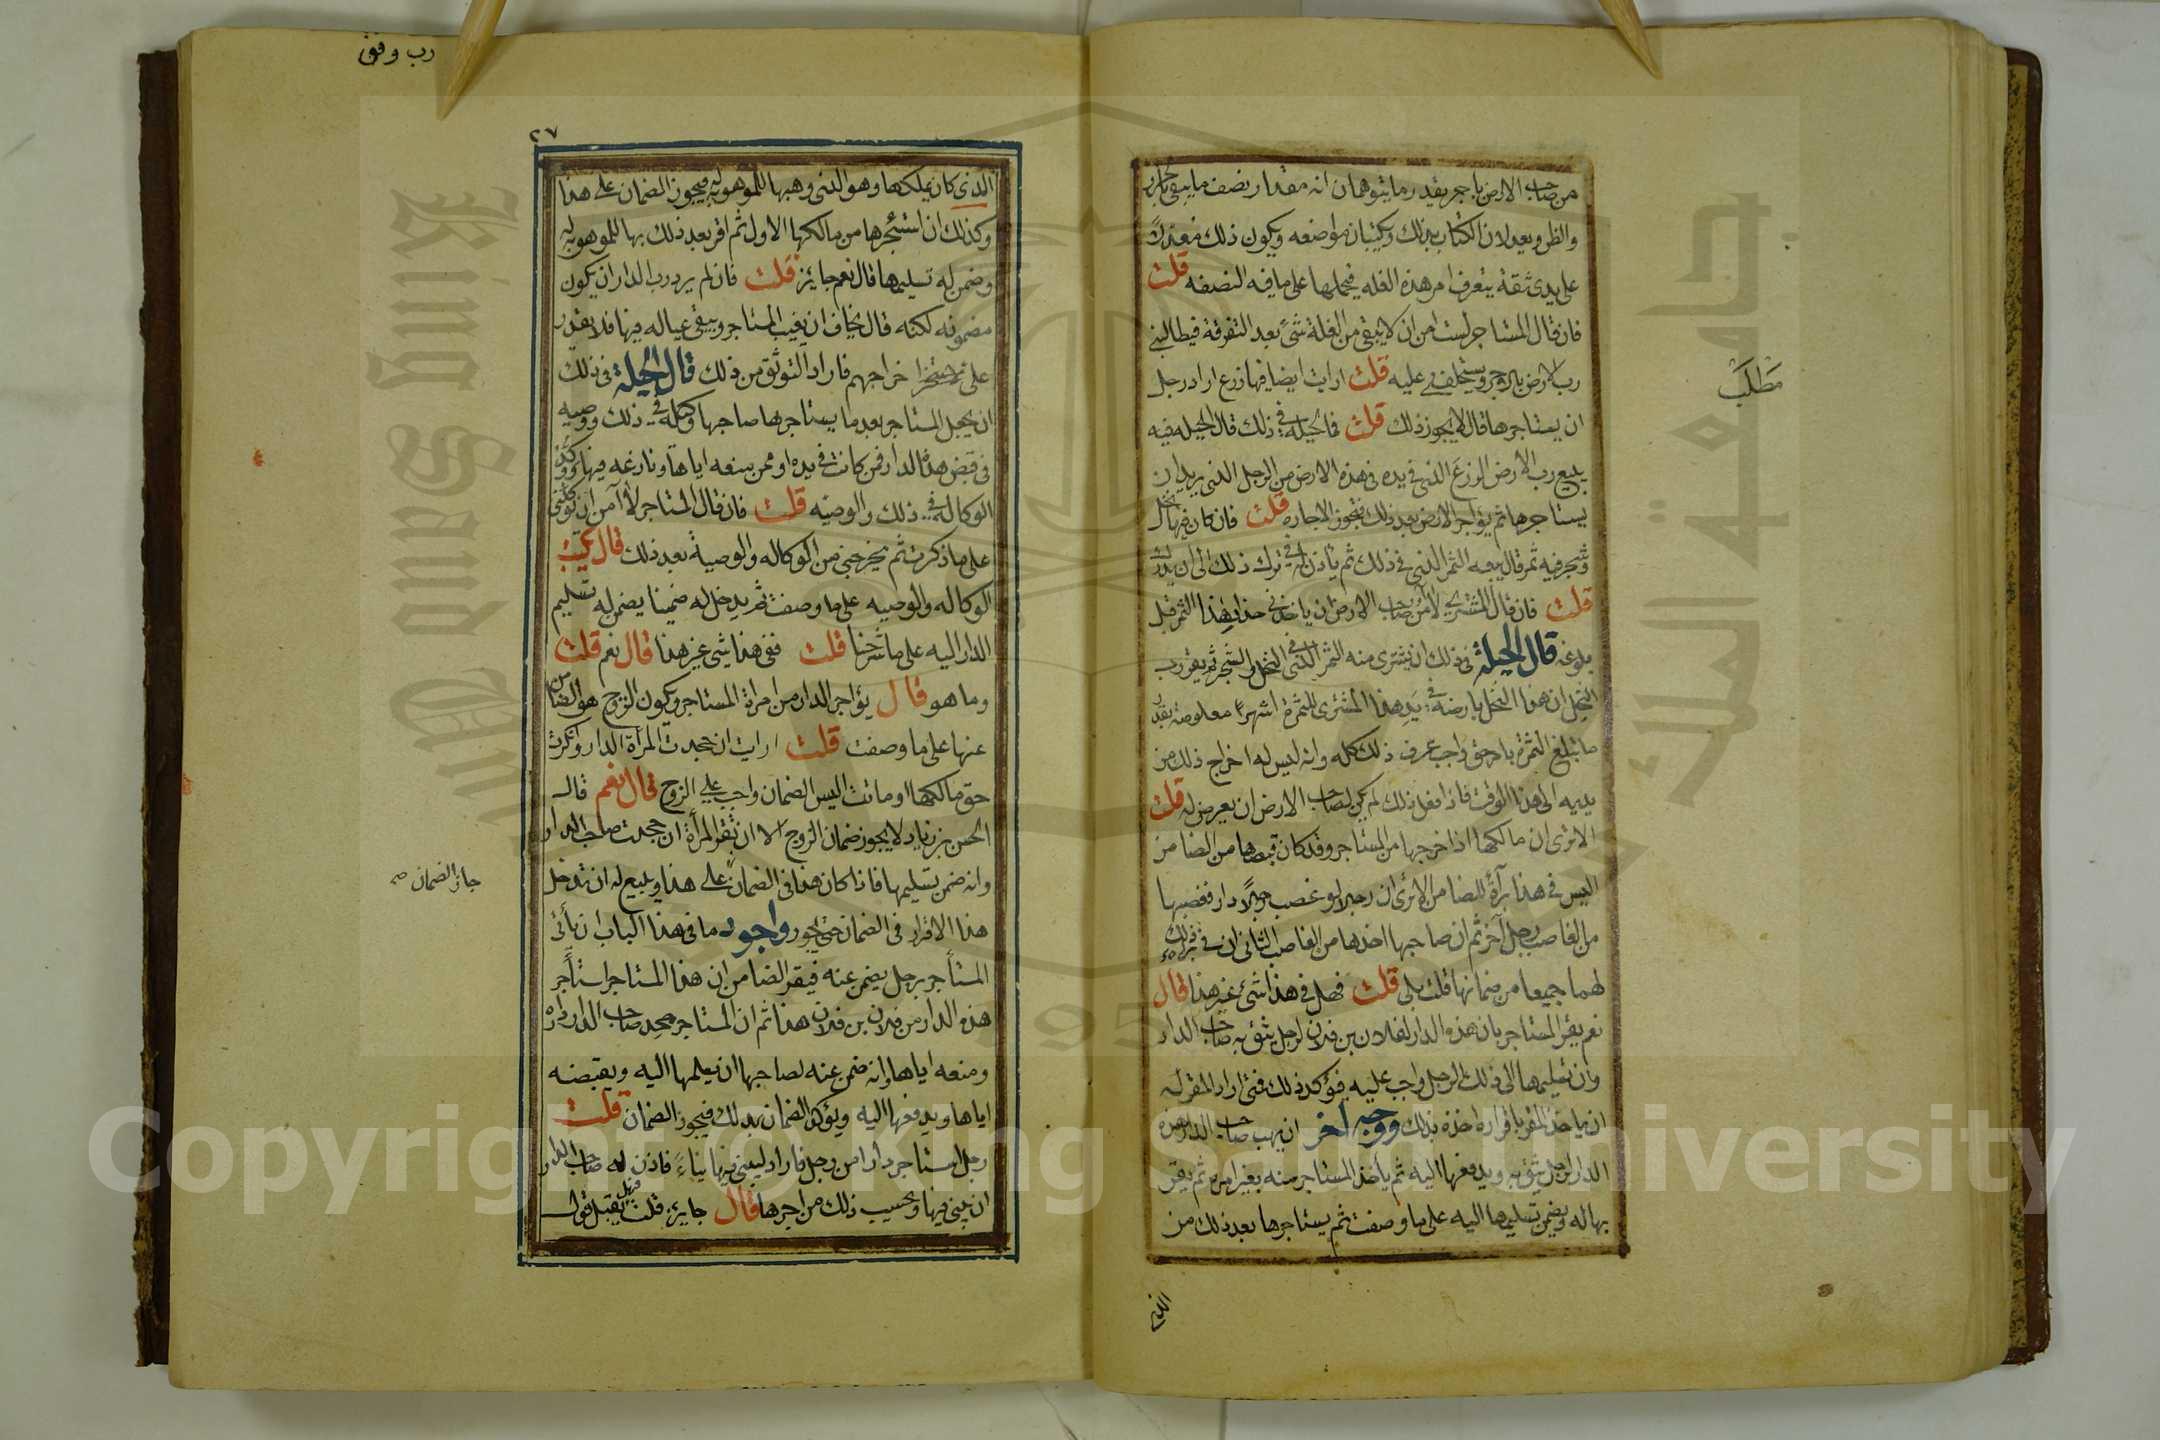 من صاحب الارض باجر بقدر ما يتوهمان انه مقدار نصف ما يبقى بالحزر
والظن ويعدلان الكتاب بذلك ويكتبان مواضعه ويكون ذلك
على يدي ثقة يتعرف امر هذه الغله فيحملها على ما فيه النصفه قلت
فان قال المستاجر لست امن ان لا يبقى من الغلة شئ بعد التفرقة فيطالبني
رب الارض بالاجر ويستحلفني عليه قلت ارايت ايضا فيها زرع اراد رجل
ان يستاجرها قال لا يجوز ذلك قلت فما الحيلة في ذلك قال الحيلة فيه
يبيع رب الارض الزرع الذي في يده في هذه الارض من الرجل الذي يريد ان
يستاجرها ثم يؤاجر الارض بعد ذلك فتجوز الاجاره قلت فان كان فيها نخل
وشجر فيه ثمر قال يبيعه الثمر الذي في ذلك ثم ياذن له في ترك ذلك الى ان يدرك
قلت فان قال المشتري لا آمن صاحب الارض ان ياخذني هذا الثمر قبل
بلوغه قال الحيلة في ذلك ان يشتري منه الثمر الذي في النخل والشجر ثم يقر رب
النخل ان هذا النخل بارضه في يد هذا المشتري للثمرة اشهرا معلومة بقدر
ما تبلغ الثمرة بامر حق واجب عرف ذلك كله وانه ليس له اخراج ذلك من
يديه الى هذا الوقت فاذا فعل ذلك لم يكن لصاحب الارض ان يعرض له قلت
الا ترى ان مالكها اذا اخرجها من المستاجر وقد كان قبضها من الضامن
اليس في هذا برآة للضامن الا ترى ان رجلا لو غصب رجلا دارا فغصبها
من الغاصب رجل آخر ثم ان صاحبها اخذها من الغاصب الثاني ان في ذلك
لهما جميعا من ضمانها قلت بلى قلت فهل في هذا شئ غير هذا قال
نعم يقر المستاجر بان هذه الدار لفلان بن فلان لرجل يثق به صاحب الدار
وان تسليمها الى ذلك الرجل واجب عليه فيؤكد ذلك فمتى اراد المقر له
ان ياخذ المقر باقراره اخذه بذلك ووجه اخر ان يهب صاحب الدار هذه
الدار لرجل يثق به ويدفعها اليه ثم يأخذ المستاجر منه بغير امره ثم يقر
بها له ويضمن تسليمها اليه على ما وصفت ثم يستاجرها بعد ذلك من
الذي
مطلب
رب وفق
٢٧
الذي كان يملكها وهو الذي وهبها للموهوب له فيجوز الضمان على هذا
وكذلك ان استئجرها من مالكها الاول ثم اقر بعد ذلك بها للموهوب له
وضمن له تسليمها قال نعم جايز قلت فان لم يرد رب الدار ان يكون
مضمونه لكنه قال يخاف ان يغيب المستاجر ويبقى عياله فيها فلا يقدر
على اخراجهم فاراد التوثق من ذلك قال الحيلة في ذلك
ان يجعل المستاجر بعد ما يستاجرها صاحبها وكيله في ذلك ووصيه
في قبض هذه الدار فمن كانت في يده او ممن يمنعه اياها ونازعه فيها ويؤكد
الوكالة في ذلك والوصيه قلت فان قال المستاجر لا آمن ان
على ما ذكرت ثم يخرجني من الوكاله والوصية بعد ذلك قال يكتب
الوكاله والوصيه على ما وصفت ثم يدخل له ضمينا يضمن له تسليم
الدار اليه على ما شرحنا قلت ففي هذا شئ غير هذا قال نعم قلت
وما هو قال يؤاجر الدار من امراة المستاجر ويكون الزوج هو الضامن
عنها على ما وصفت قلت ارايت ان جحدت المرأة الدار وانكرت
حق مالكها او ماتت اليس الضمان واجب على الزوج قال نعم قال
الحسن بن زياد لا يجوز ضمان الزوج الا ان تقر المرأة ان جحدت صاحب الدار
وانه ضمن تسليمها فاذا كان هذا في الضمان على هذا ويبيع له ان تدخل
هذا الاقرار في الضمان حتى يجوز واجود ما في هذا الباب ان يأتي
المستأجر برجل يضمن عنه فيقر الضامن ان هذا المستاجر استأجر
هذه الدار من فلان بن فلان هذا ثم ان المستاجر جحد صاحب الدار داره
ومنعه اياها وانه ضمن عنه لصاحبها ان يسلمها اليه ويقبضه
اياها ويدفعها اليه ويؤكد الضمان بذلك فيجوز الضمان قلت
رجل استاجر دارا من رجل فاراد ليبني فيها بناء فاذن له صاحب الدار
ان يبني فيها ويحسب ذلك من اجرها قال جايز قلت فهل يقبل قول
جاز الضمان صح
جامعة الملك سعود
King Saud University
1957
Copyright © King Saud University